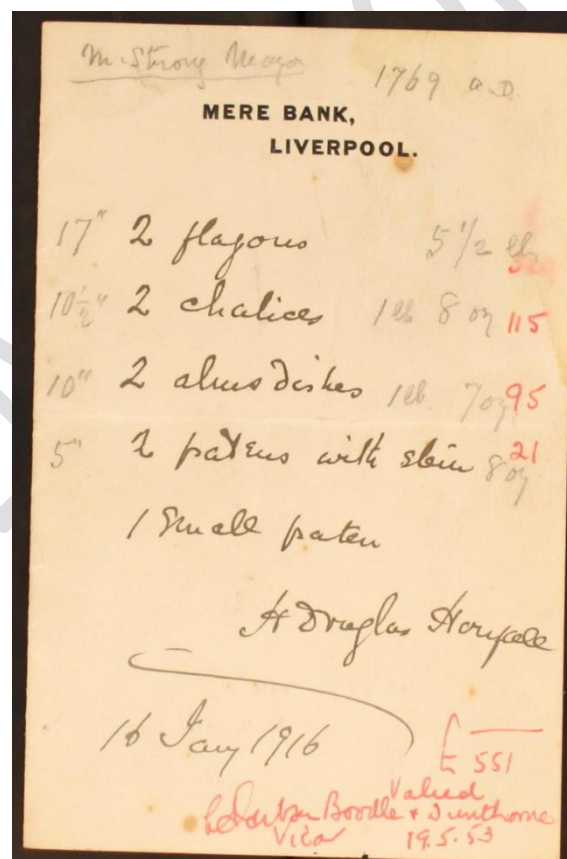 1769 A.D.
MERE BANK,
LIVERPOOL.
17" 2 flagons 5 1/2 lb
10 1/2" 2 chalices 1 lb 8 oz 115
10" 2 alms dishes 1 lb 7 oz 95
5" 2 patens with stem 8 oz 21
1 Small paten
H Douglas Horsfall
16 Jany 1916
£ 551
Valued
Boodle & Dunthorne
Vicar 19.5.53